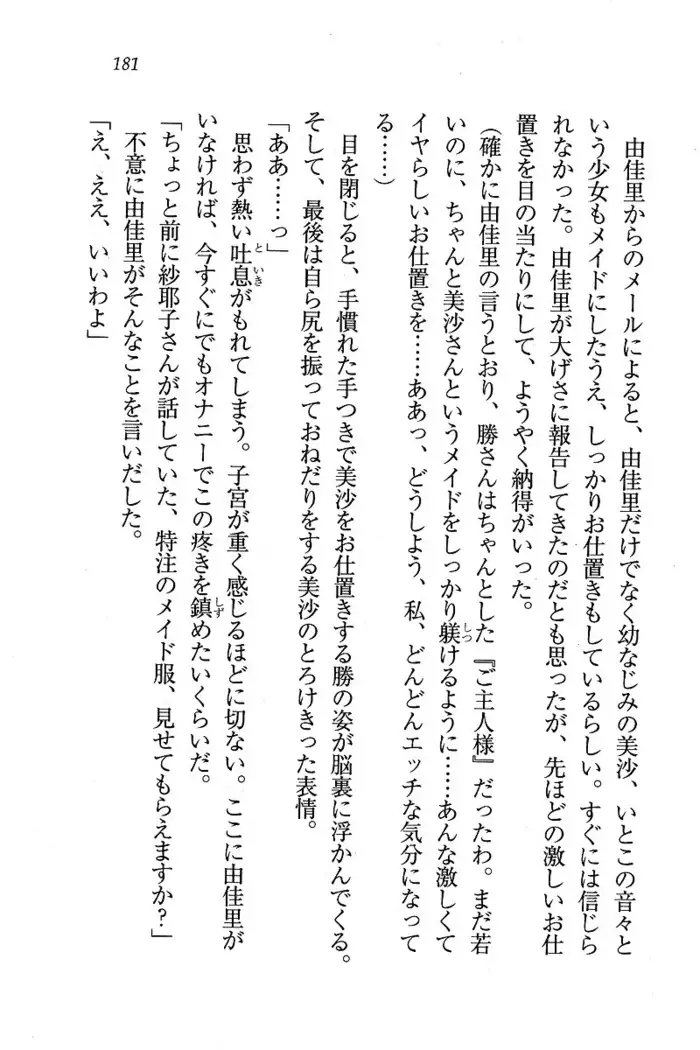 181
由佳里からのメールによると、由佳里だけでなく幼なじみの美沙、いとこの音々と
いう少女もメイドにしたうえ、しっかりお仕置きもしているらしい。すぐには信じら
れなかった。由佳里が大げさに報告してきたのだとも思ったが、先ほどの激しいお仕
置きを目の当たりにして、ようやく納得がいった。
(確かに由佳里の言うとおり、勝さんはちゃんとした『ご主人様』だったわ。まだ若
いのに、ちゃんと美沙さんというメイドをしっかり躾けるように……あんな激しくて
イヤらしいお仕置きを……ああっ、どうしよう、私、どんどんエッチな気分になって
る……)
目を閉じると、手慣れた手つきで美沙をお仕置きする勝の姿が脳裏に浮かんでくる。
そして、最後は自ら尻を振っておねだりをする美沙のとろけきった表情。
「ああ……っ」
思わず熱い吐息がもれてしまう。子宮が重く感じるほどに切ない。ここに由佳里が
いなければ、今すぐにでもオナニーでこの疼きを鎮めたいくらいだ。
「ちょっと前に紗耶子さんが話していた、特注のメイド服、見せてもらえますか?」
不意に由佳里がそんなことを言いだした。
「え、ええ、いいわよ」